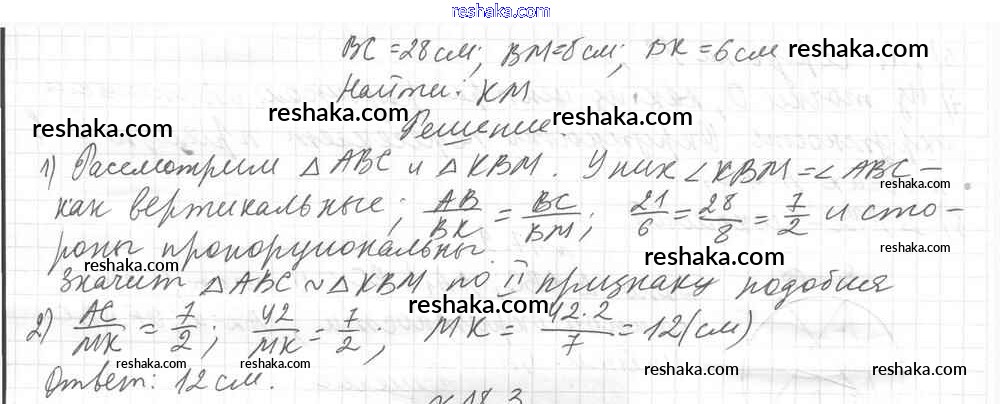 reshaka.com
BC = 28 см; BM = 8 см; BK = 6 см reshaka.com
Найти: KM reshaka.com
reshaka.com Решение
1) Рассмотрим △ ABC и △ KBM. У них ∠ KBM = ∠ ABC – reshaka.com
как вертикальные; AB/BK = BC/BM; 21/6 = 28/8 = 7/2 и сто-
роны пропорциональны. reshaka.com reshaka.com
Значит △ ABC ~ △ KBM по II признаку подобия
reshaka.com
2) AC/MK = 7/2; 42/MK = 7/2; MK = 42·2/7 = 12 (см)
reshaka.com reshaka.com reshaka.com
Ответ: 12 см. reshaka.com
18.3